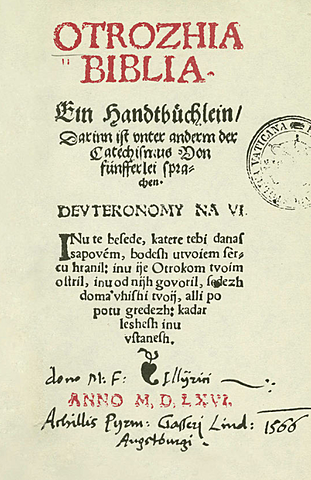 OTROZHIA
BIBLIA.
Ein Handtbüchlein/
Darinn ist vnter anderm der
Catechismus Von
fünfferlei spra-
chen.
DEVTERONOMY NA VI.
INu te beſede, katere tebi danas
sapovém, bodesh utvoiem ſer-
cu hranil: inu ije Otrokom tvoim
oſtril, inu od nijh govoril, ſedezh
doma vhiſhi tvoij, alli po
potu gredezh: kadar
leshesh inu
vſtanesh.
dono M. F: Illÿrici
ANNO M, D, LXVI.
Achillis Pyrm: Gasserj Lind: 1566
Augstburgi.
VATICANA